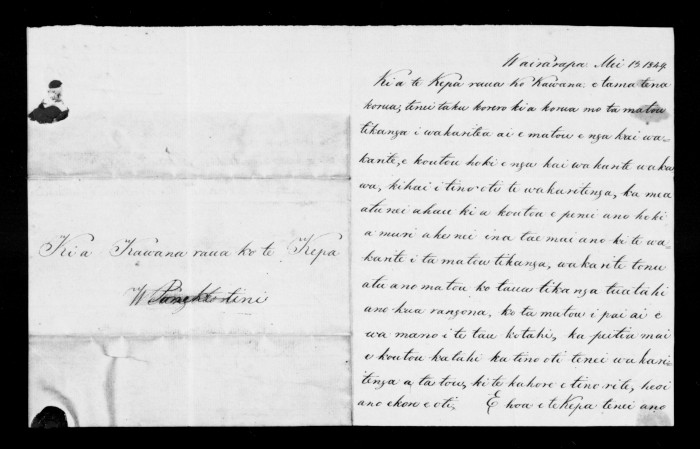 Ki a Kawana raua ko te Kepa
Wairarapa Mei 15 1849.
Ki a te Kepa raua ko Kawana. e tama tena
korua; tenei taku korero ki a korua mo ta matou
tikanga i wakaritea ai e matou e nga kai wa-
karite, e koutou hoki e nga kai wakarite waka
wa, kihai i tino oti te wakaritenga, ka mea
atu nei ahau ki a koutou e penei ano hoki
a muri ake nei ina tae mai ano ki te wa
karite i ta matou tikanga, wakarite tonu
atu ano matou ko taua tikanga tuatahi
ano kua rangona, ko ta matou i pai ai e
wa mano i te tau kotahi, ka putu mai
e koutou katahi ka tino oti tenei wakari-
tenga a ta tou, ki te kahore e tino rite, heoi
ano ekore e oti, E hoa e te Kepa tenei ano